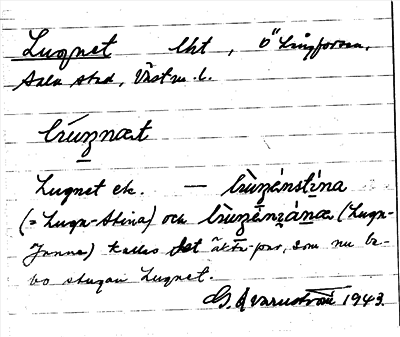 Lugnet lht, ö Långforsen,
Sala stad, Västm. l.
Lugnet etc. —
(= Lugn-Stina) och (Lugn-
Janne) kallas det äkta par, som nu be-
bo stugan Lugnet.
G. Kvarnström 1943.